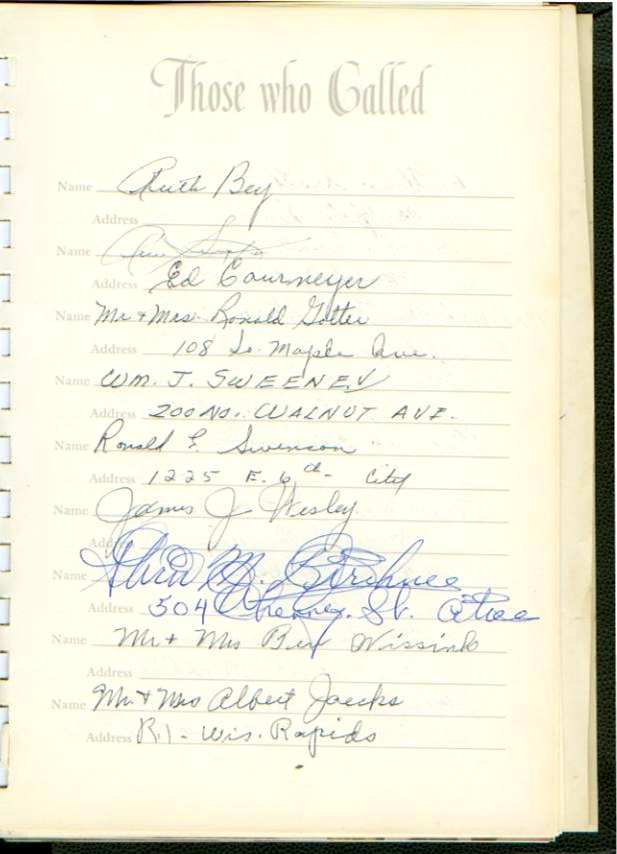 Those who Called
Name Ruth Bey
Address
Name
Address Ed Courmeyer
Name Mr & Mrs. Ronald Gotter
Address 108 So. Maple Ave.
Name WM. J. SWEENEY
Address 200 NO. WALNUT AVE.
Name Ronald E. Swenson
Address 1225 E. 6th - City
Name James J Wesley
Address
Name M.
Address 504 St.
Name Mr + Mrs Ben Wissink
Address
Name Mr. & Mrs Albert Jaecks
Address R.1 - Wis. Rapids